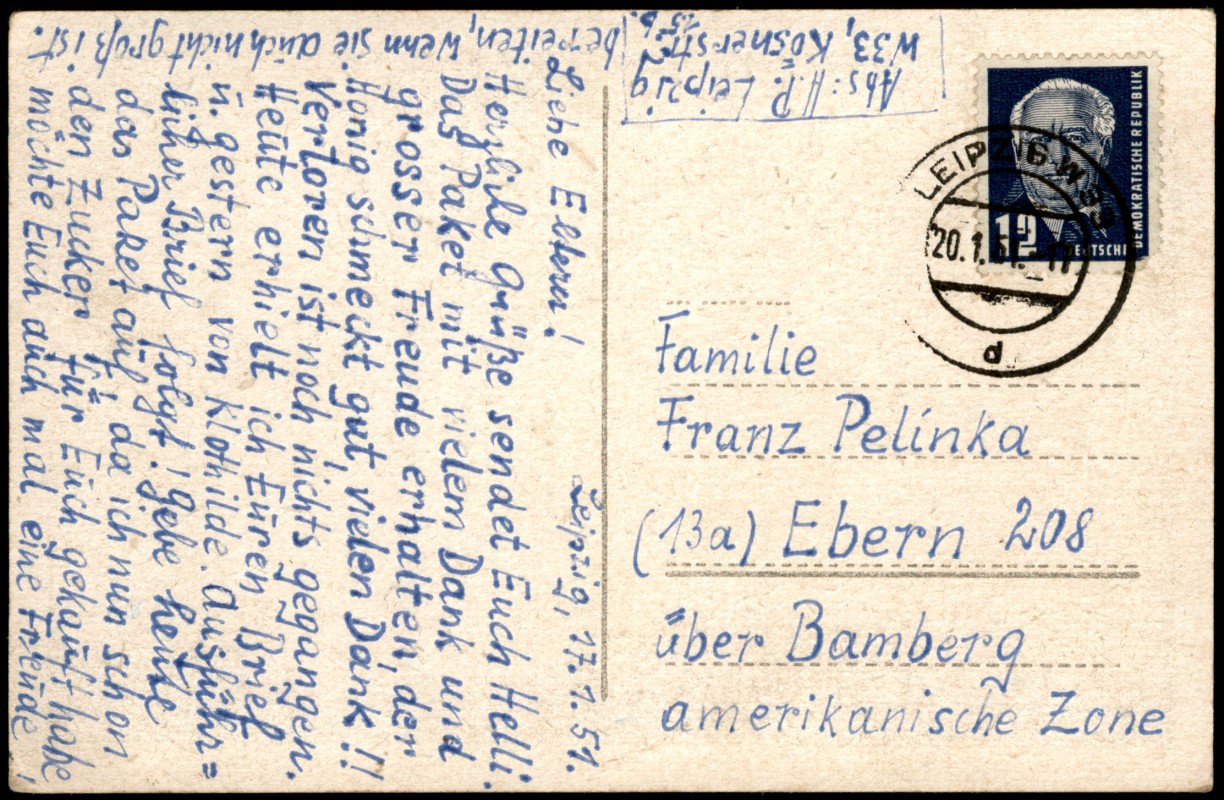 Leipzig, 17.1.51.
Liebe Eltern!
Herzliche Grüße sendet Euch Helli.
Das Paket mit vielem Dank und
grosser Freude erhalten, der
Honig schmeckt gut, vielen Dank!!
Verloren ist noch nichts gegangen.
Heute erhielt ich Euren Brief
u. gestern von Klothilde. Ausführ=
licher Brief folgt! Gebe heute
das Paket auf, da ich nun schon
den Zucker für Euch gekauft habe,
möchte Euch auch mal eine Freude,
bereiten, wenn sie auch nicht groß ist.
Abs: H.P. Leipzig
W33, Kösnerstr.
DEUTSCHE DEMOKRATISCHE REPUBLIK
12
LEIPZIG W33
20.1.51.-17
d
Familie
Franz Pelinka
(13a) Ebern 208
über Bamberg
amerikanische Zone